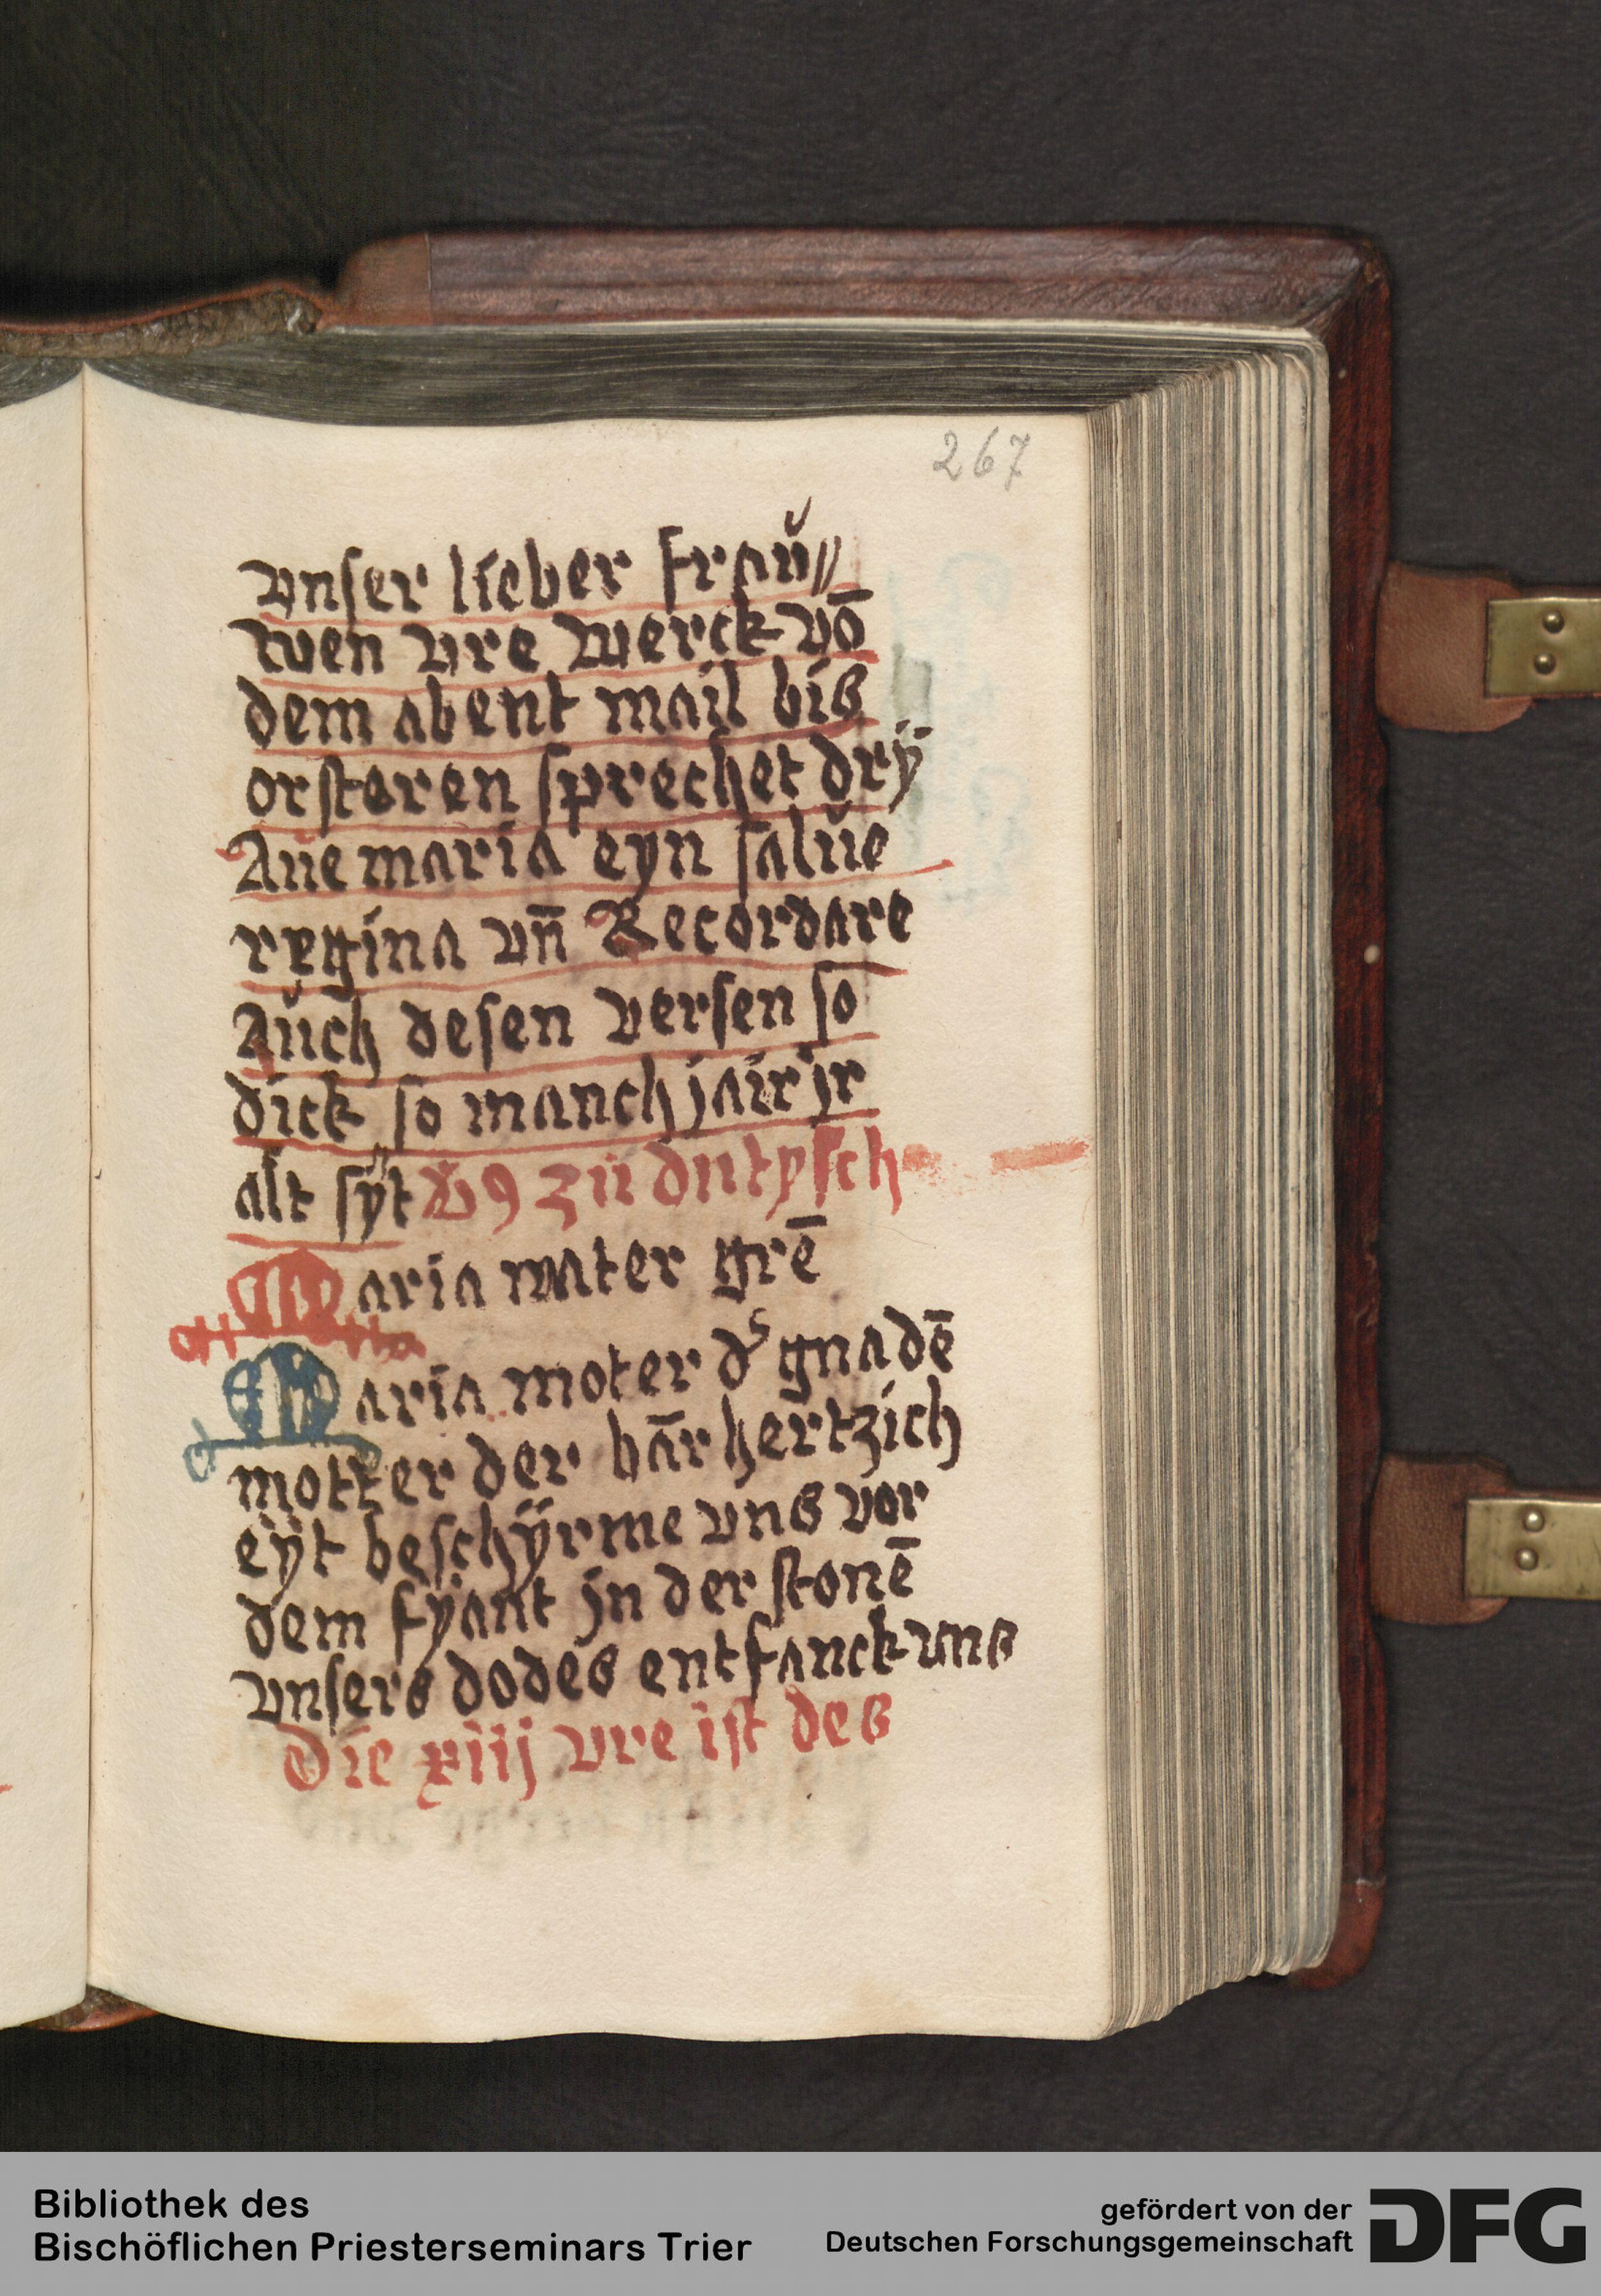 267
vnser lieber fraŭ//
wen vre werck vō
dem abent mail biß
orsteren sprechet drÿ
Aue maria eyn salŭe
regina vn̄ Recordare
Aŭch desen versen so
dick so manch jair jr
alt sÿt zü dutysch
Maria mater grē
Maria moter d gnadē
motter der bār hertzich
eÿt beschÿrme vnß vor
dem fÿant jn der stonē
vnsers dodes entfanck vns
Die xiij vre ist deß
Bibliothek des
Bischöflichen Priesterseminars Trier
gefördert von der
Deutschen Forschungsgemeinschaft
DFG